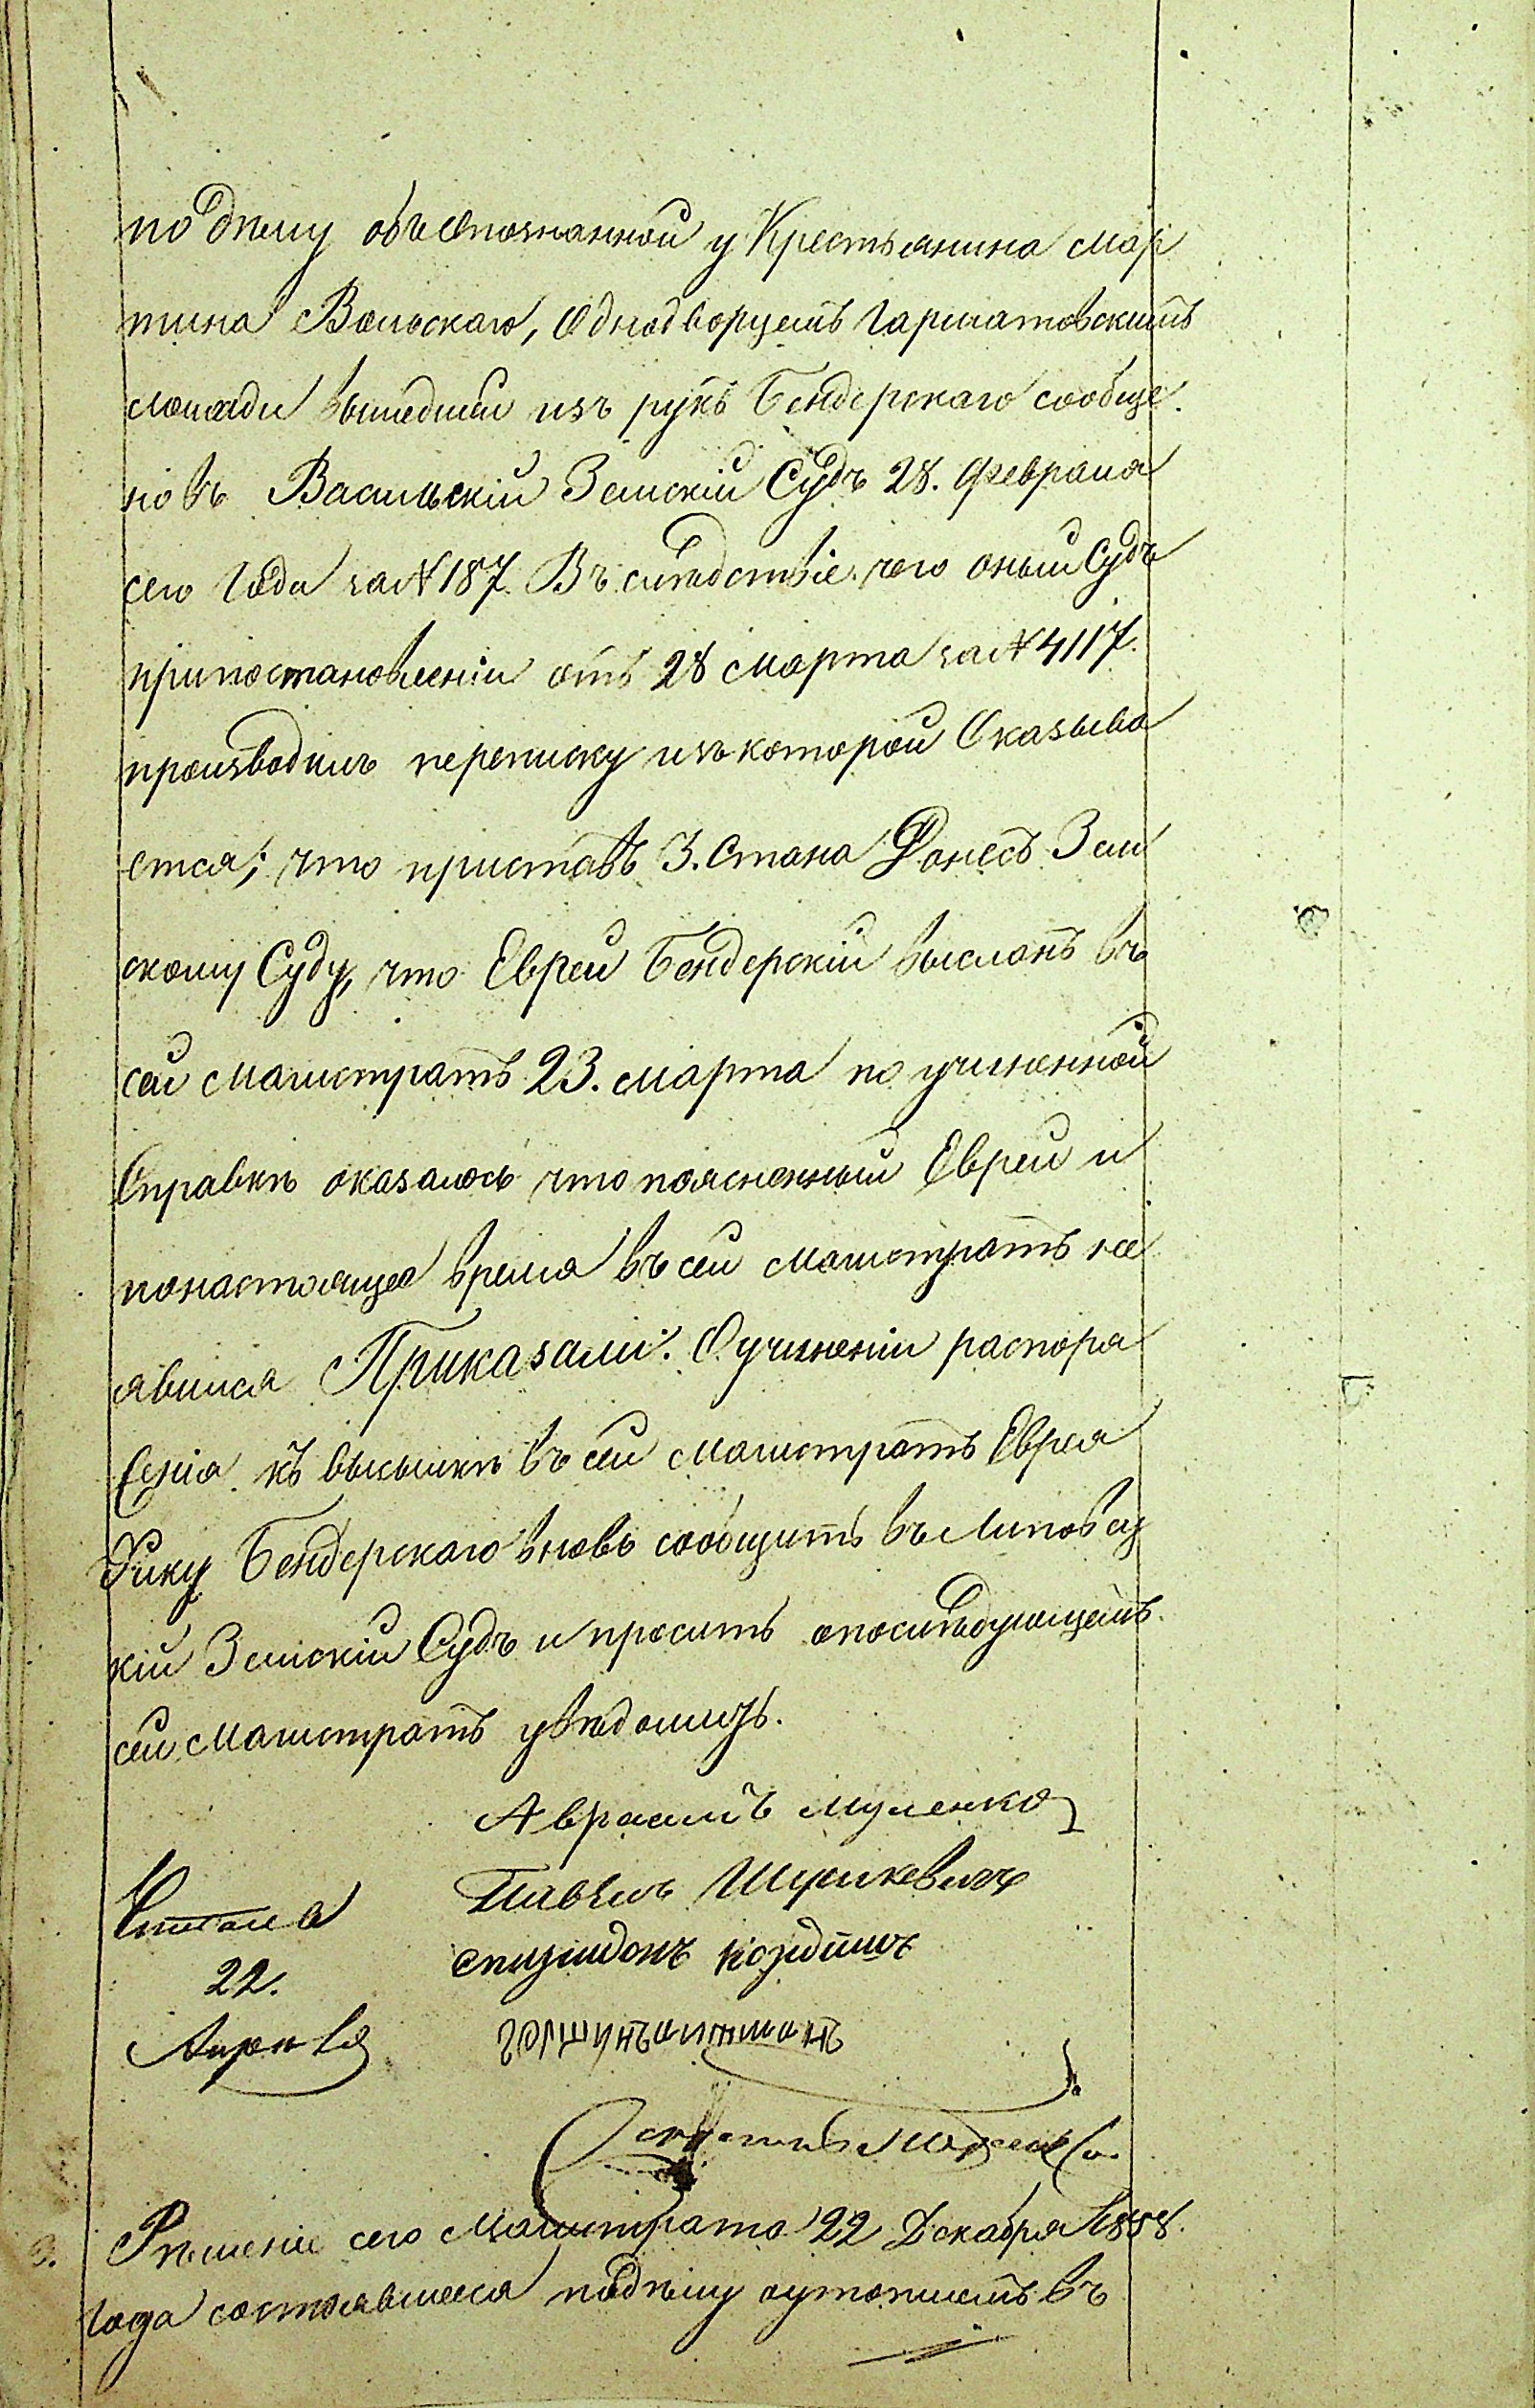 по дѣлу объ опознанной у Крестьянина Мар
тина Вольскаго, Однодворцемъ Гарматовскимъ
лошади вышедшей изъ рукъ Бендерскаго сообще
но въ Васильскій Земскій Судъ 28. Февраля
сего Года за № 187. Въ слѣдствіе чего оный Судъ
припостановленіи отъ 28 Марта за № 4117.
производилъ переписку изъ которой Оказыва
ется; что приставъ 3. Стана Донесъ Зем
скому Суду, что Еврей Бендерскій высланъ въ
сей Магистратъ 23. Марта по учиненной
Справкѣ оказалось что поясненный Еврей и
понастоящее время въ сей Магистратъ не
явился Приказали: О учиненіи распоря
енія къ высылкѣ въ сей Магистратъ Еврея
Бендерскаго вновь сообщить въ Липовец
кій Земскій Судъ и просить опослѣдующемъ
сей Магистратъ увѣдомить.
Авраамъ Муленко
Павелъ
22.
Апрѣля
Рѣшеніе сего Магистрата 22 Декабря 1858.
года состоявшееся подѣлу оутопшемъ въ